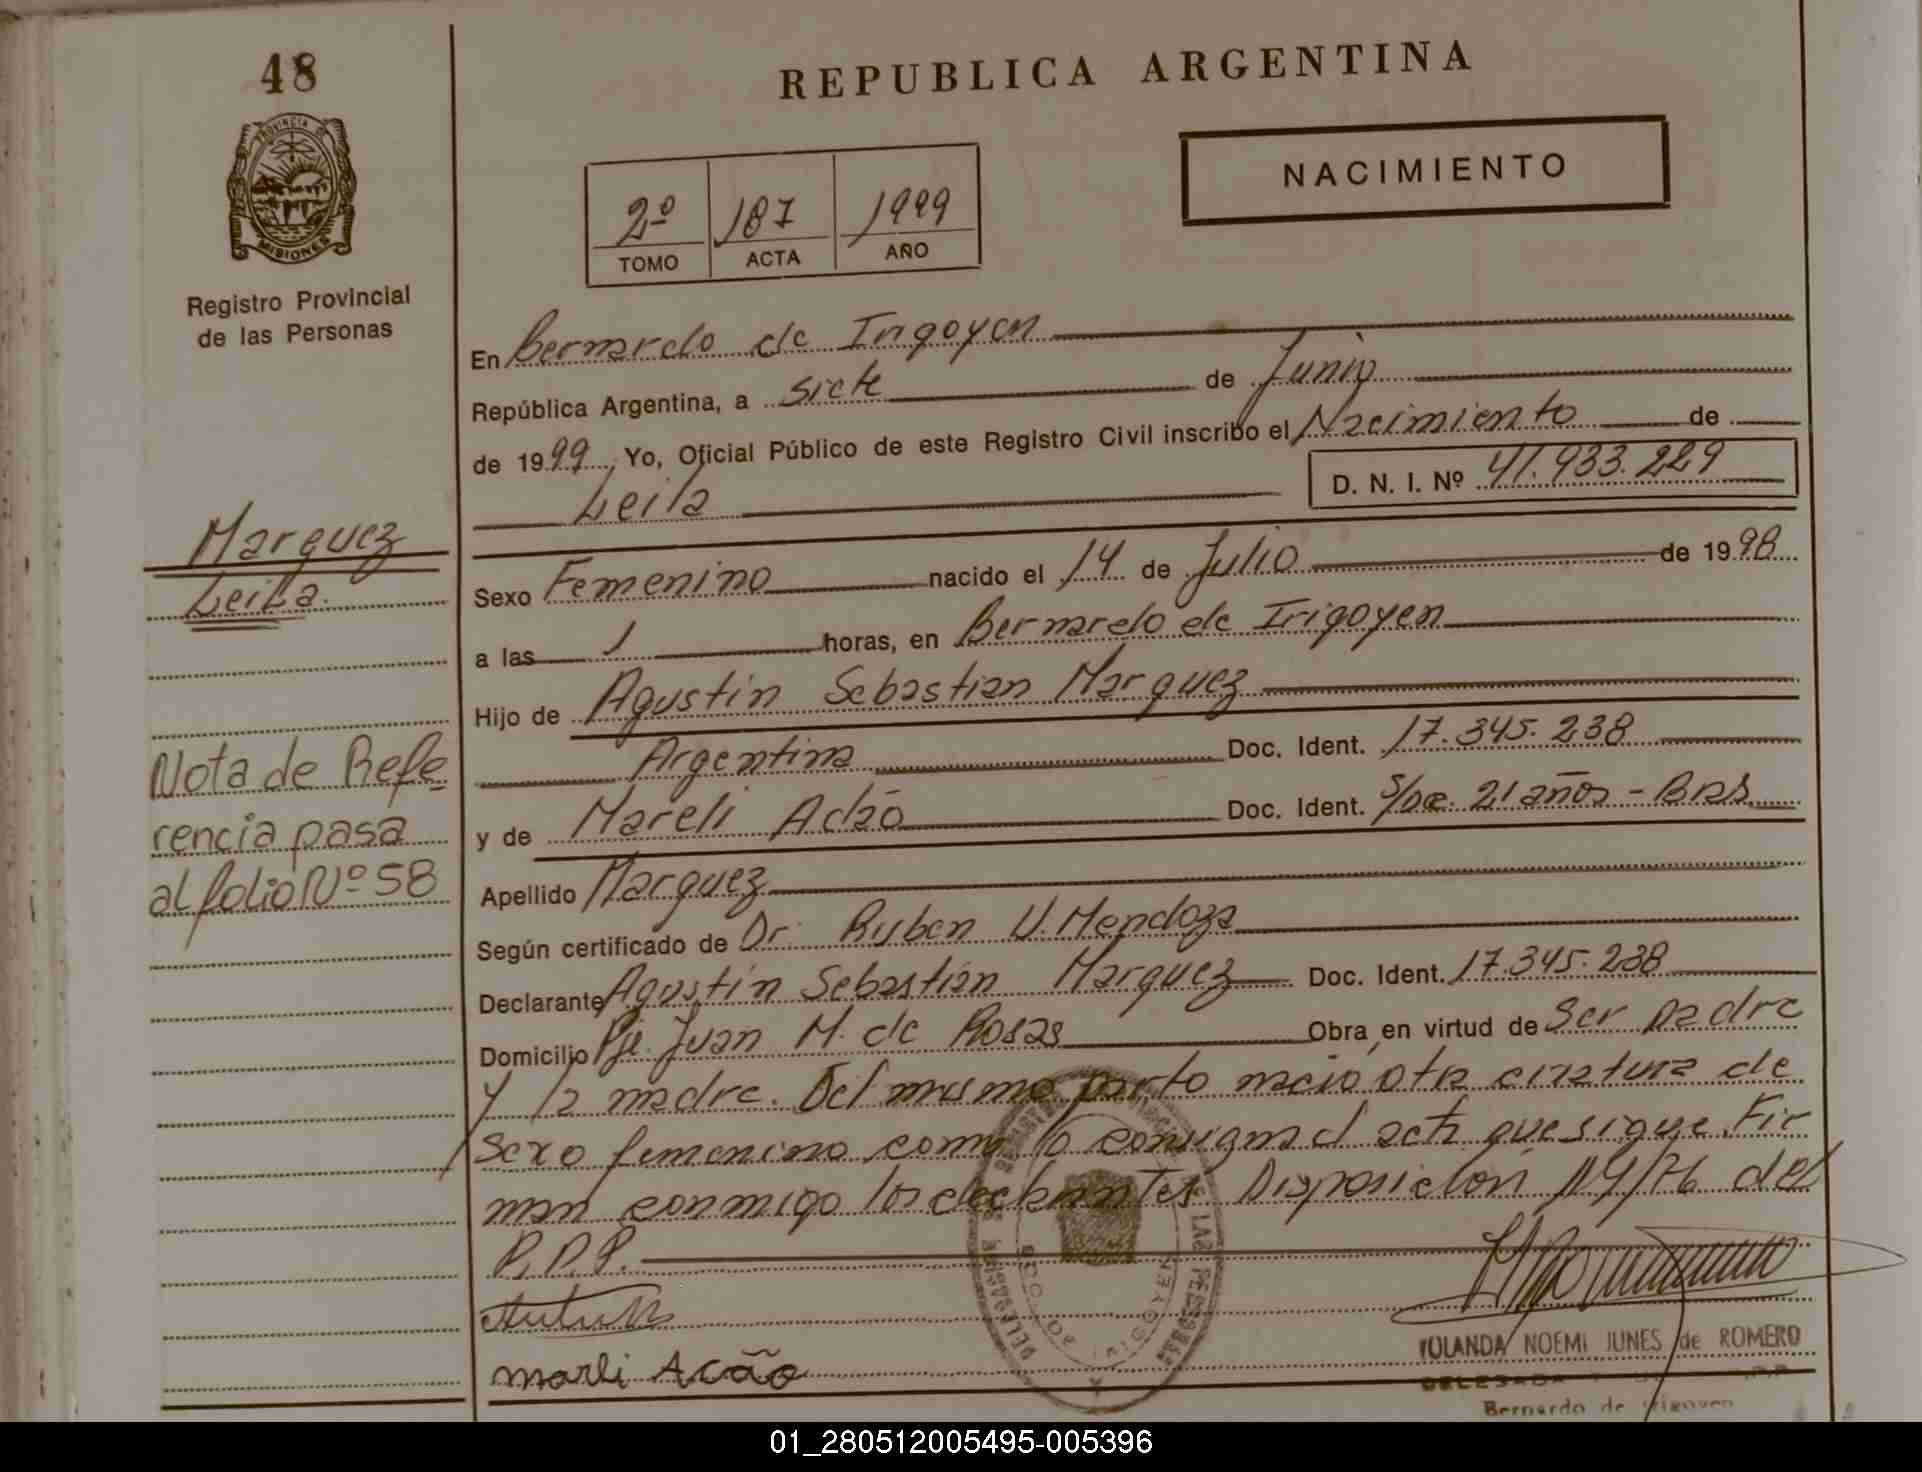 48
REPUBLICA ARGENTINA
NACIMIENTO
PROVINCIA DE
MISIONES
2º 187 1999
TOMO ACTA AÑO
Registro Provincial
de las Personas
En Bernardo de Irigoyen
República Argentina, a siete de Junio
de 1999 Yo, Oficial Público de este Registro Civil inscribo el Nacimiento de
Leila D. N. I. Nº 41.933.229
Marquez
Leila.
Sexo Femenino nacido el 14 de Julio de 1998
a las 1 horas, en Bernardo de Irigoyen
Hijo de Agustin Sebastian Marquez
Argentina Doc. Ident. 17.345.238
y de Mareli Adão Doc. Ident. S/Doc. 21 años - Bras.
Nota de Refe
rencia pasa
al folio Nº 58
Apellido Marquez
Según certificado de Dr. Ruben U. Mendoza
Declarante Agustín Sebastián Marquez Doc. Ident. 17.345.238
Domicilio Pje. Juan M. de Rosas Obra en virtud de ser padre
y la madre. Del mismo parto nació otra criatura de
sexo femenino como lo consigna el acta que sigue. Fir
man conmigo los declarantes Disposición 114/76 del
R.P.P.
marli Adão
YOLANDA NOEMI JUNES de ROMERO
DELEGADA
Bernardo de Irigoyen
01_280512005495-005396